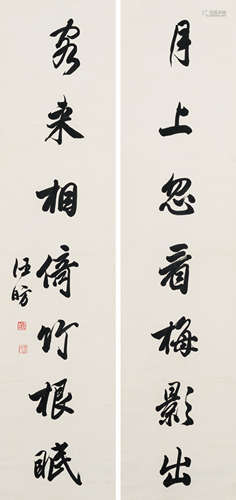 月上忽看梅影出
客来相倚竹根眠
汪昉